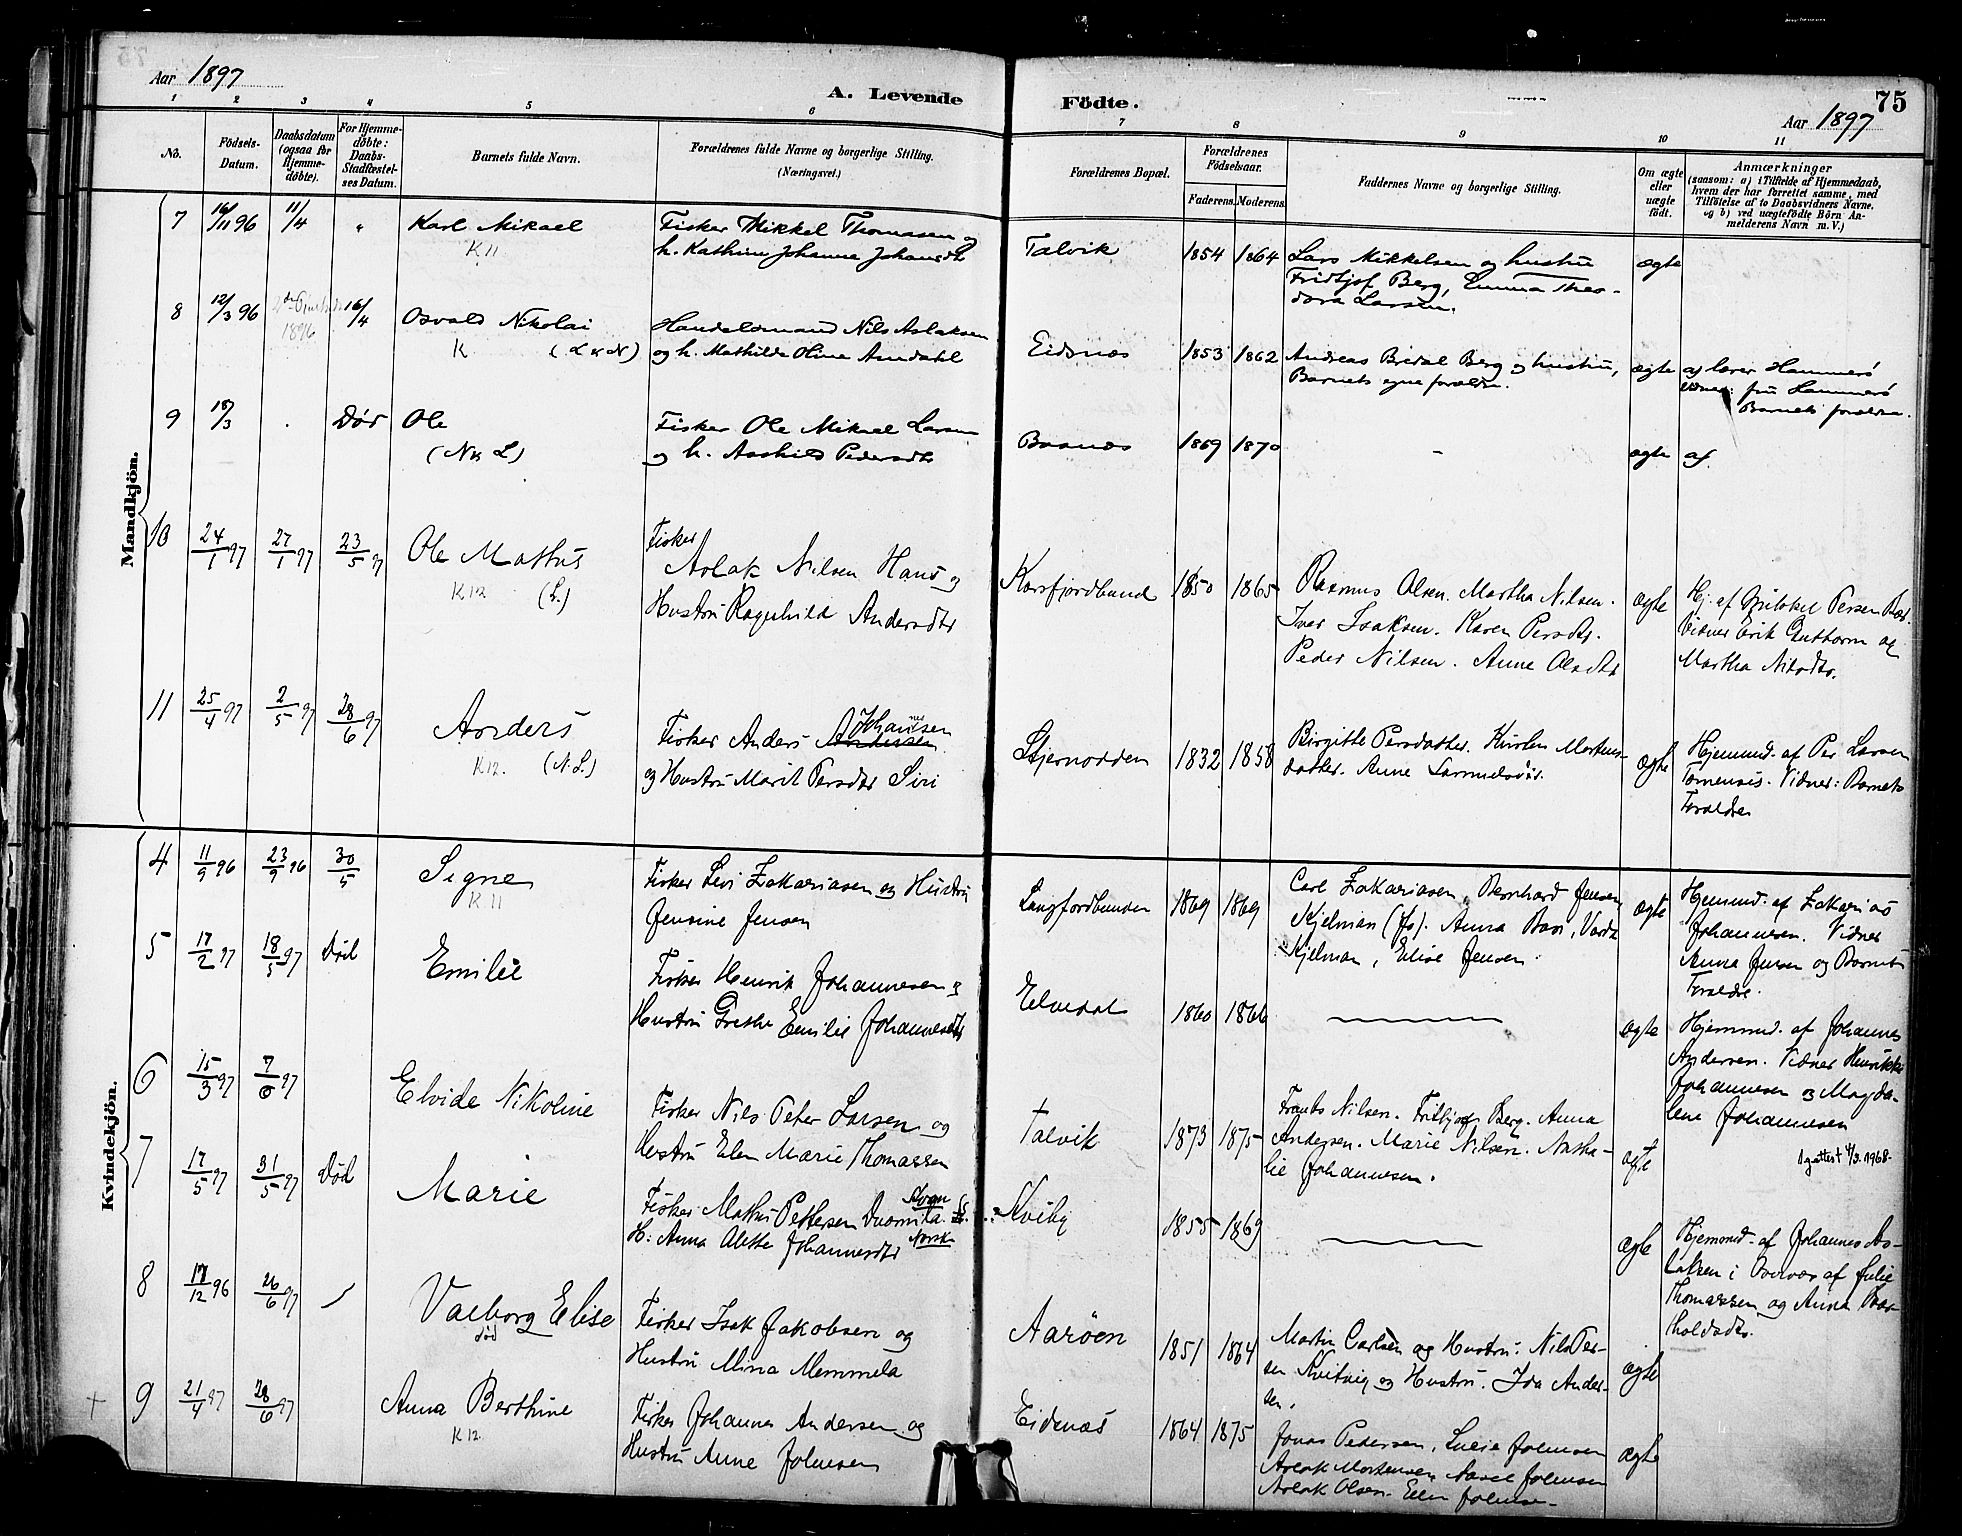 Aar 1897
A. Levende
Födte.
75
Aar 1897
1 2 3 4 5 6 7 8 9 10 11
No.
Födsels-Datum.
Daabsdatum (ogsaa for Hjemme-döbte).
For Hjemme-döbte: Daabs-Stadfæstel-ses Datum.
Barnets fulde Navn.
Forældrenes fulde Navne og borgerlige Stilling.
(Næringsvei.)
Forældrenes Bopæl.
Forældrenes Födselsaar.
Faderens. Moderens.
Faddernes Navne og borgerlige Stilling.
Om ægte eller uægte födt.
Anmærkninger
(saasom: a) i Tilfælde af Hjemmedaab,
hvem der har forrettet samme, med
Tilföielse af to Daabsvidners Navne,
og b) ved uægtefödte Börn An-
melderens Navn m. V.)
Mandkjön.
7 16/11 96 11/4 „ Karl Mikael
K11
Fisker Mikkel Thomasen og
h. Kathrine Johanna Johansdtr
Talvik 1854 1864
Lars Mikkelsen og hustru
Fridtjof Berg, Emma Theo-
dora Larsen.
ægte
8 12/3 96 1896 16/4 Osvald Nikolai
K (L & N)
Handelsmand Nils Aslaksen
og h. Mathilde Oline Amdahl
Eidsnæs 1853 1862
Andreas Bredal Berg og hustru,
Barnets egne forældre.
ægte
af lærer Hammerö
vidner: fru Hammerö
Barnets forældre.
9 18/3 . Död Ole
(N & L)
Fisker Ole Mikael Larsen
og h. Aashild Pedersdtr
Bosnæs 1869 1870 - ægte af
10 24/1 97 27/1 97 23/5 97 Ole Mathis
K12 (L.)
Fisker
Aslak Nilsen Hans og
Hustru Ragnhild Andersdtr
Korsfjordbund 1850 1865
Rasmus Olsen. Martha Nilsen.
Iver Isaksen. Karen Persdtr.
Peder Nilsen. Anne Olsdtr
ægte
Hj. af Mikkel Persen
Vidner Erik Guttorm og
Martha Nilsdtr.
11 25/4 97 2/5 97 28/6 97 Anders
K12. (N.L.)
Johansen
Fisker Anders Andersen
og Hustru Marit Persdtr Siri
Stjernodden 1832 1858
Birgitte Persdatter. Kirsten Mortens-
datter. Anne Samuelsdtr.
ægte
Hjemmd. af Per Larsen
Tornensis. Vidner: Barnets
Foræld​re
Kvindekjön.
4 11/9 96 23/9 96 30/5 Signe
K11
Fisker Levi Zakariasen og Hustru
Jensine Jensen
Langfjordbunden 1869 1869
Carl Zakariasen, Bernhard Jensen,
Kjelman (fs). Anna Bas, Varda
Kjelman, Elise Jensen.
ægte
Hjemmd. af Zakarias
Johannesen. Vidner
Anna Jensen og Barnets
Forældre.
5 17/2 97 18/5 97 Död Emilie
Fisker Henrik Johannesen og
Hustru Grethe Emilie Johannesdtr
Elvedal 1860 1866 ægte
Hjemmd. af Johannes
Andersen. Vidner Henrikke
Johannesen og Magda-
lene Johannesen
6 15/3 97 7/6 97 Elvide Nikoline
Fisker Nils Peter Larsen og
Hustru Elen Marie Thomassen
Talvik 1873 1875
Frants Nilsen. Fritjof Berg. Anna
Andersen. Marie Nilsen. Natha-
lie Johannesen.
ægte
1 gattest 4/3. 1968.
7 17/5 97 31/5 97 Död Marie
Fisker Mathis Pettersen Duomila.
Kvæn
H: Anna Alette Johannesdtr Norsk
Kviby 1855 1869 ægte
Hjemmd. af Johannes As-
laksen i Overvær af Julie
Thomassen og Anna Bar-
tholdsdtr.
8 17/12 96 26/6 97 Valborg Elise
död
Fisker Isak Jakobsen og
Hustru Mina Memmela
Aaröen 1851 1864
Martin Carlsen og Hustru. Nils Per-
sen Kvitvig og Hustru. Ida Ander-
sen.
ægte
+ 9 21/4 97 28/6 97 Anna Berthine
K12.
Fisker Johannes Andersen og
Hustru Anne Johnsen
Eidsnæs 1864 1875
Jonas Pedersen, Lucie Johnsen
Aslak Mortensen, Aasel Johnsen
Aslak Olsen. Ellen Johnse-
ægte